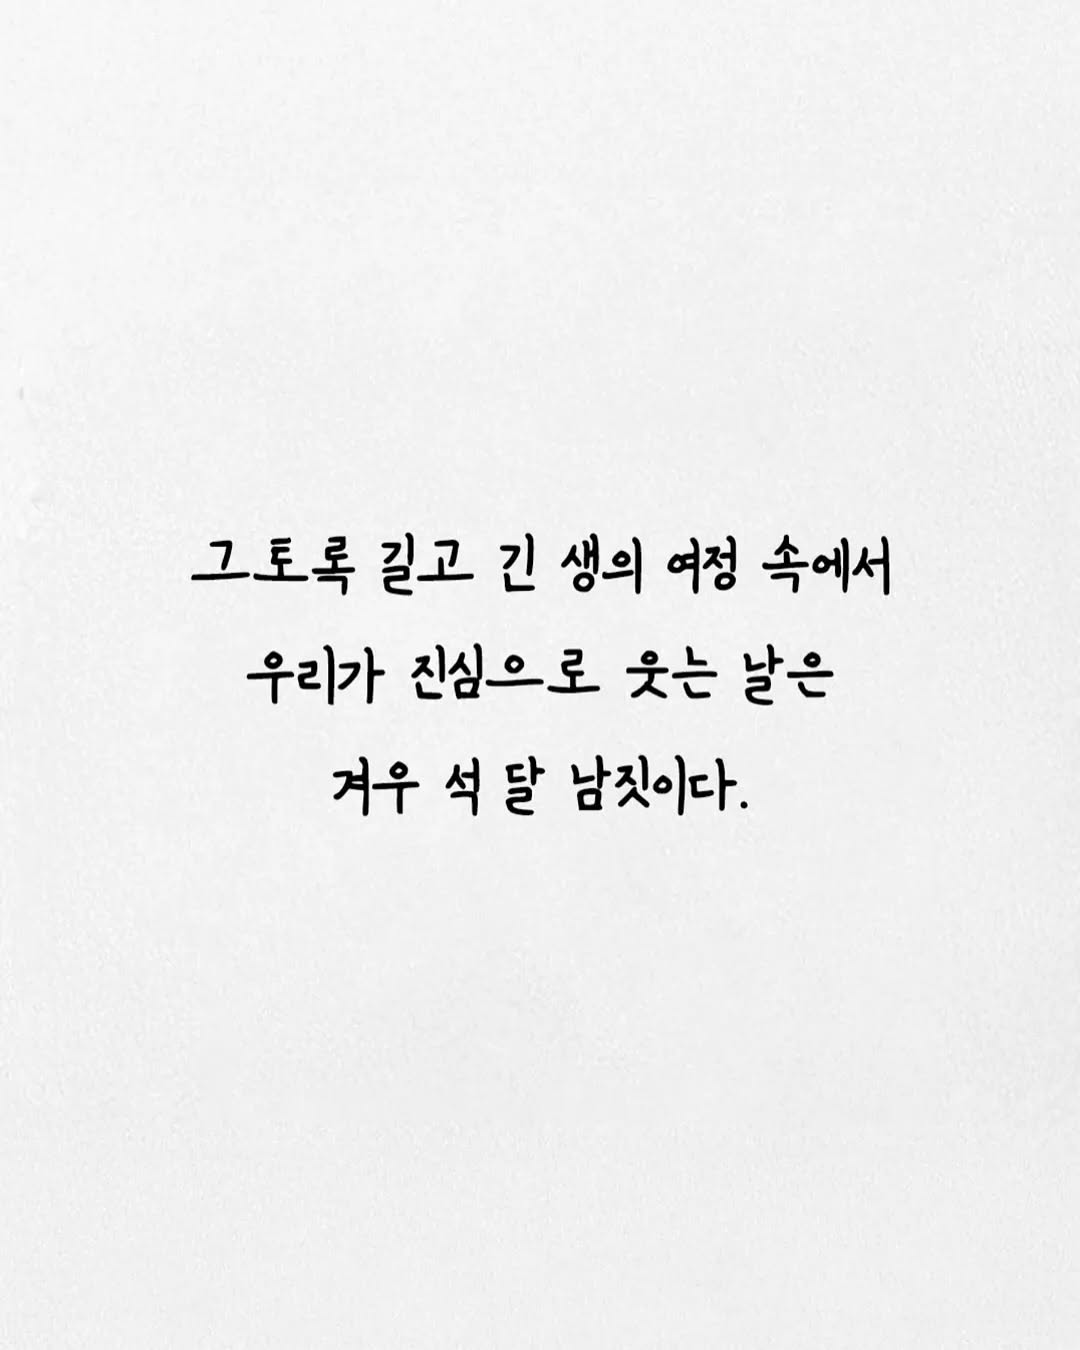 그토록 길고 긴 생의 여정 속에서
우리가 진심으로 웃는 날은
겨우 석 달 남짓이다.